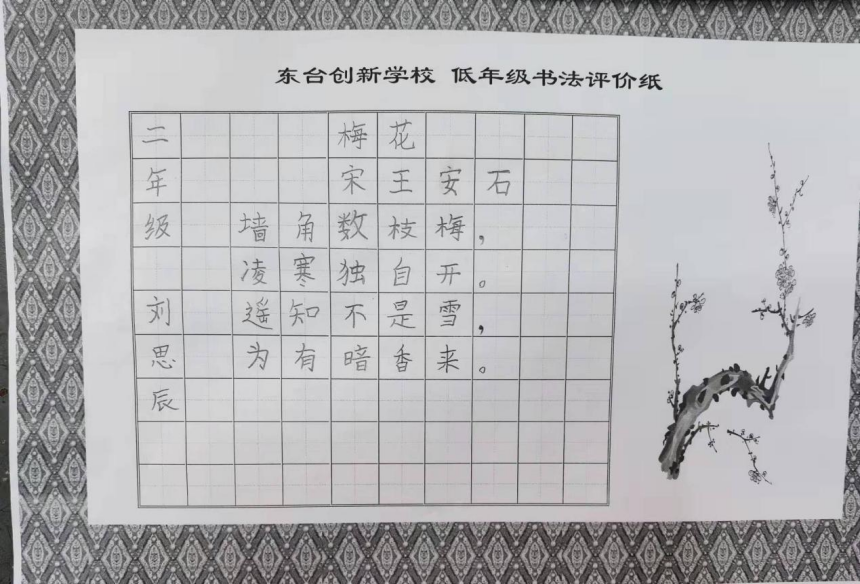 东台创新学校 低年级书法评价纸
梅花
宋王安石
墙角数枝梅，
凌寒独自开。
遥知不是雪，
为有暗香来。
二年级 刘思辰